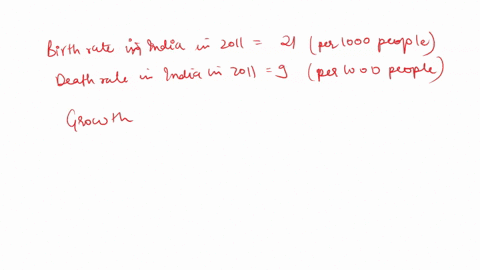 Birth rate in India in 2011 = 21 (per 1000 people)
Death rate in India in 2011 = 9 (per 1000 people)
Growth